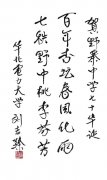 贺野寨中学七十华诞
百年杏坛春风化雨
七秩野中桃李芬芳
华北电力大学 刘吉臻